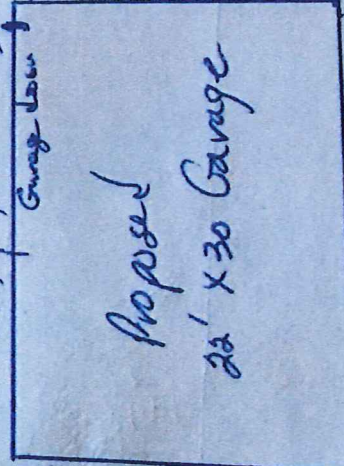 Garage door
Proposed
22' x 30 Garage